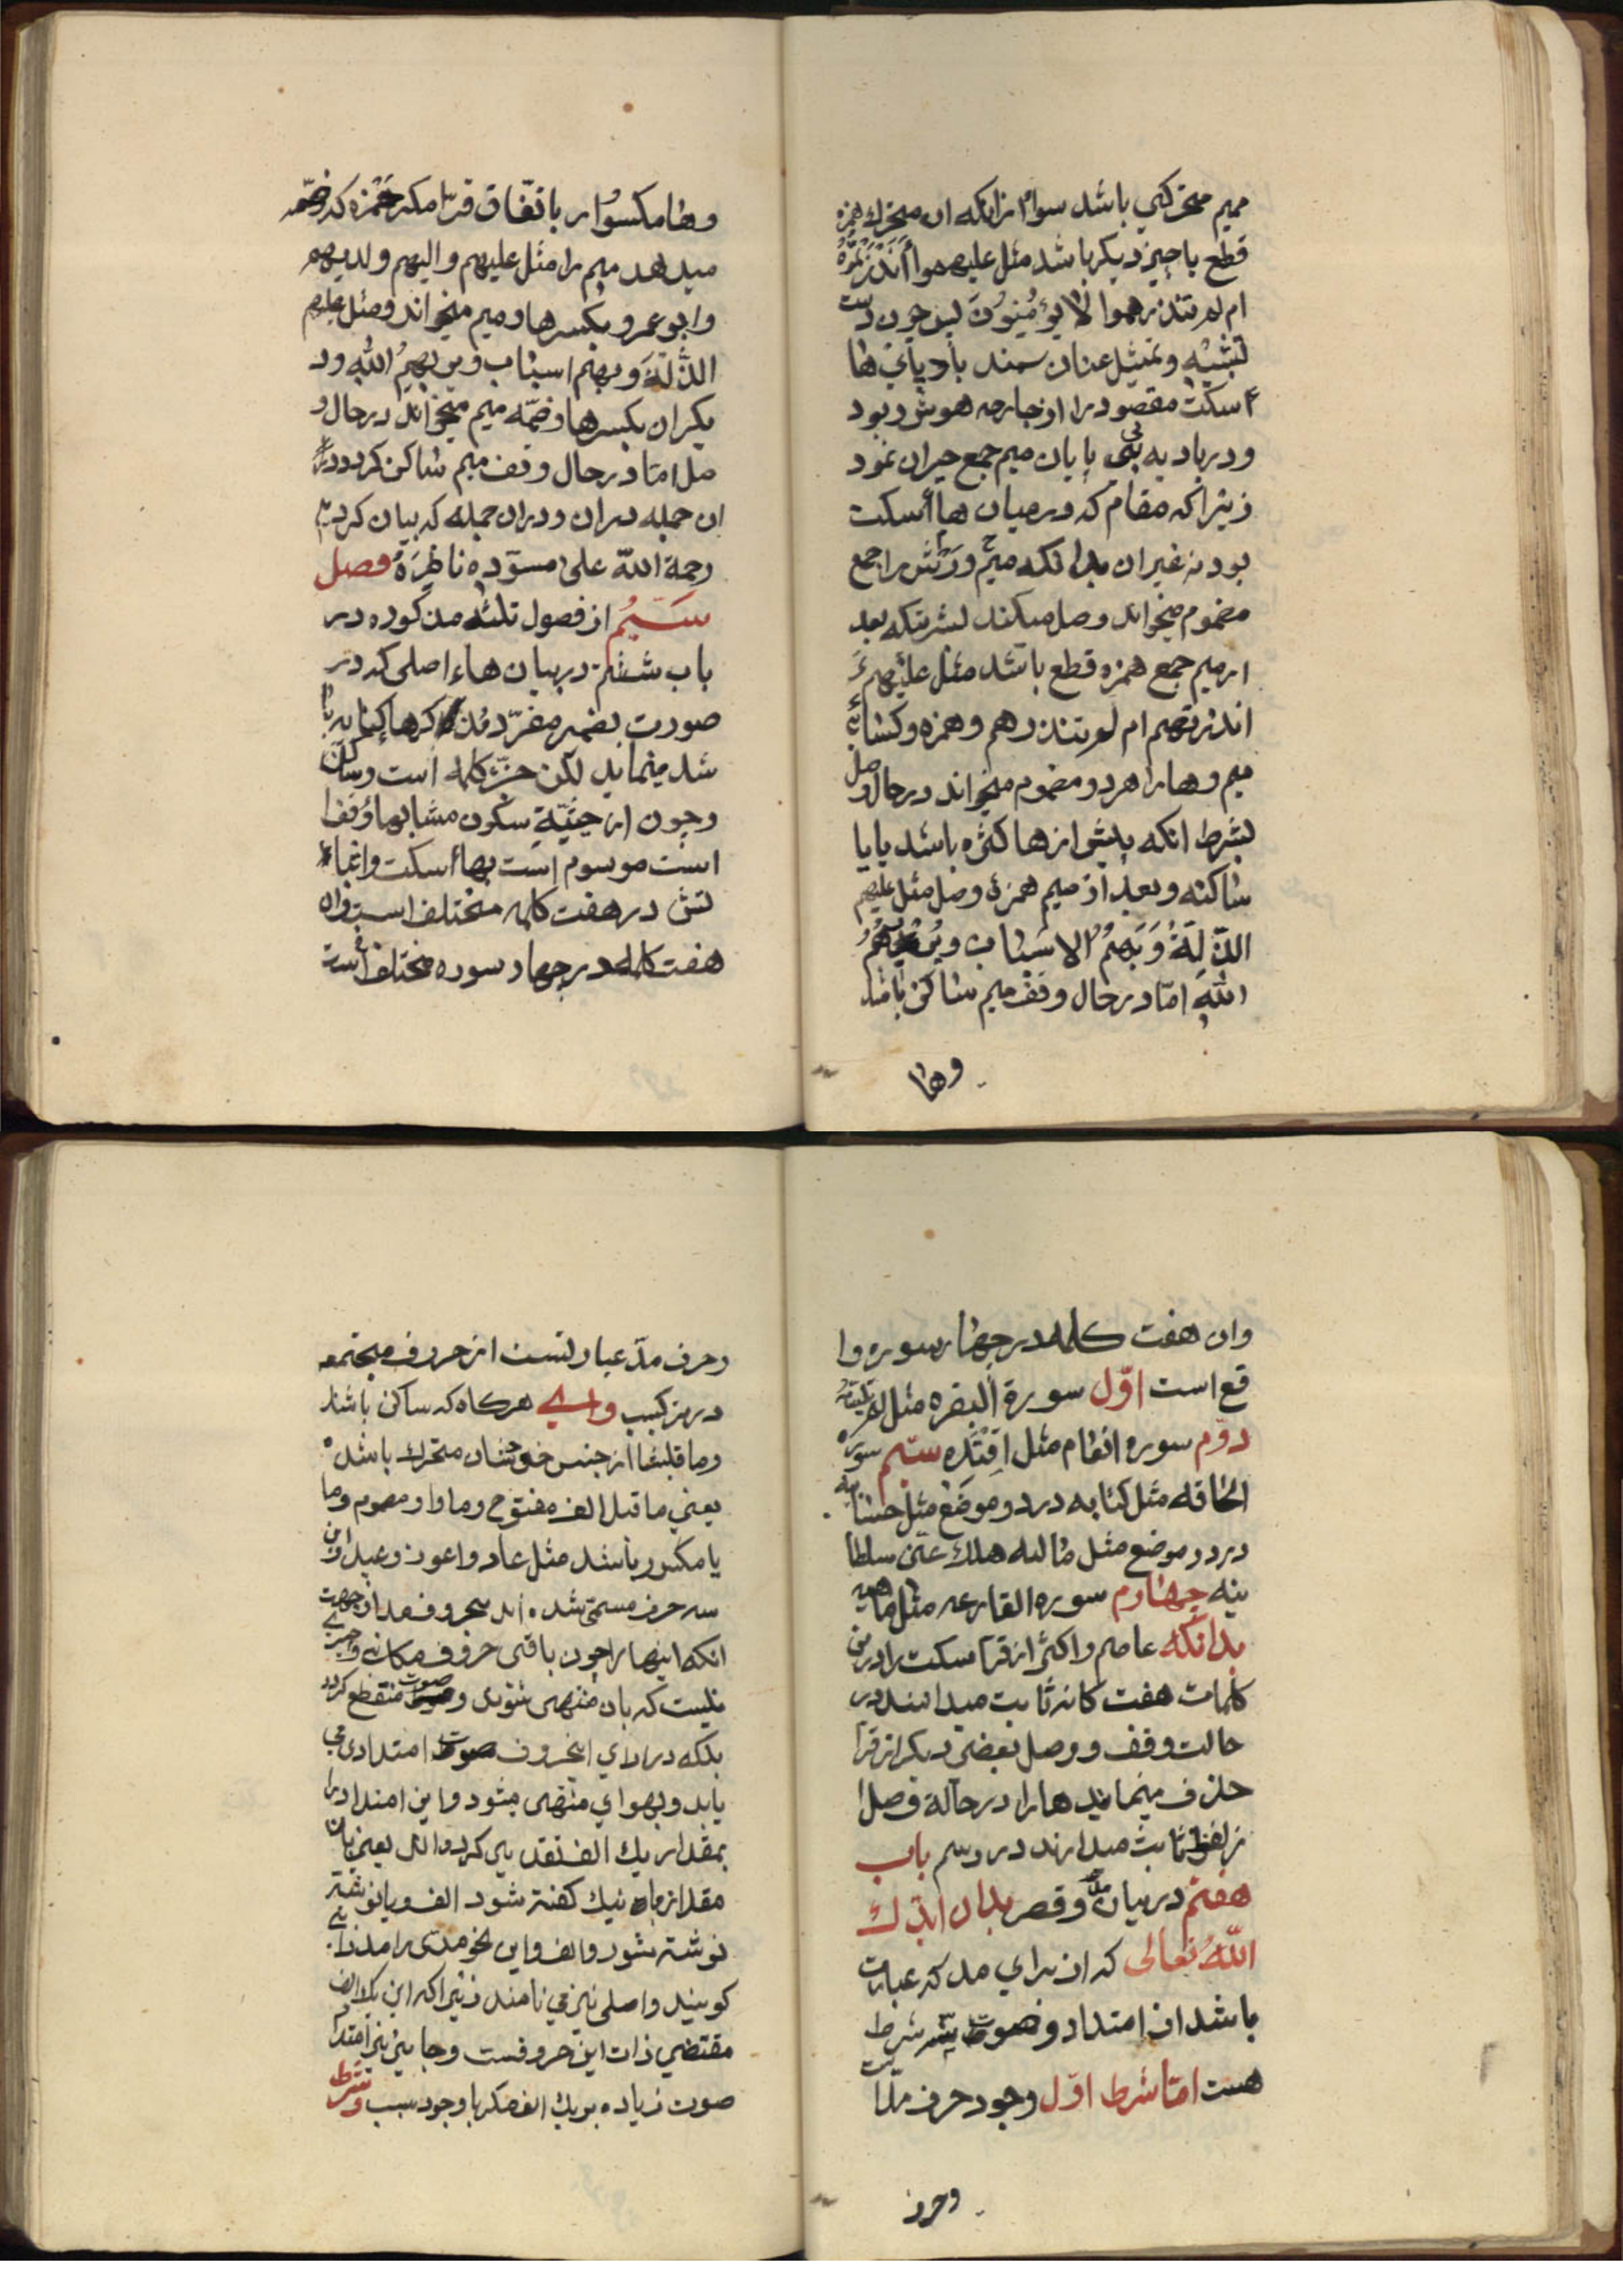 میم متحرکی باشد سواء ازانکه ان متحرك همزه
قطع یا چیز دیکر باشد مثل علیهموا أنذرتهم
ام لم تنذرهموا لا یؤمنون لیس چون دست
تشبیه و تمثیل عنان سمند باد پای ها
ء اسکت مقصود را از جا هوش ربود
و در بادیه بی پایان میم جمع حیران نمود
زیرا که مقام که در میان هاء اسکت
بود نه غیر ان بدانکه میم ورش را جمع
مضموم میخواند وصل میکند بشرتیکه بعد
از میم جمع همزه قطع باشد مثل علیهم ء
انذرتهم ام لم تنذرهم و همزه و کسائی
میم و ها را هر دو مضموم میخواند در حال وصل
بشرط انکه پیش از ها کثره باشد یا یا
ساکنه و بعد از میم همزهٔ وصل مثل علیهم
الذلة و بهم الاسباب و
الله امّا در حال وقف میم ساکن باشد
وها
وها مکسور باتّفاق قرّا مکر حمزه که ضمّه
میدهد میم را مثل علیهم و الیهم و لدیهم
و ابو عمرو بکسر ها و میم میخواند و مثل علیهم
الذّلة و بهم اسباب و الله و د
یکران بکسر ها و ضمّه میم میخوانند در حال و
صل امّا در حال وقف میم ساکن کردد
ان جمله دران و دران جمله که بیان کردیم
رحمة الله علی مسوّده ناظره فصل
سیُم از فصول ثلثه مذکوره در
باب ششم در بیان هاء اصلی که در
صورت بضمیر مفرد مذکر ها کنایه با
شد مینماید لکن جزء کلمه است و ساکن
و چون از حیثیة سکون مشابه هاء وقفا
است موسوم است بهاء اسکت و اثبا
تش در هفت کلمه مختلف است و ان
هفت کلمه در چهار سوره مختلف است
وان هفت کلمه در چهار سوره وا
قع است اوّل سورة البقره مثل لم یتسنّه
دوّم سوره انعام مثل اقتده سیّم سوره
الحاقه مثل کتابیه در دو موضع مثل حسابیه
در دو موضع مثل مالیه هلك عنی سلطا
نیه چهارم سوره القارعه مثل ماهیه
بدانکه عاصم و اکثر از قرّا سکت را در این
کلمات هفت کانه ثابت میدانند در
حالت وقف و وصل بعضی دیکر از قرّا
حذف مینمایند ها را در حاله وصل ا
ز لفظ ثابت میدارند در رسم باب
هفتم در بیان مدّ و قصر بدان ایّدك
اللّه تعالی که از برای مد که عبارت
باشد از امتداد صوت سه شرط
هست امّا شرط اوّل وجود حرف مد است
وحرف
وحرف مدّ عبارتست از حروف مجتمعه
در ترکیب وای هرکاه که ساکن باشد
و ما قبلها از جنس خودشان متحرك باشد
یعنی ما قبل الف مفتوح و ما واو مضموم و ما
یا مکسور باشد مثل عاد و اعوذ و عید و این
سه حرف مسمّی شده اند بحروف مد از جهت
انکه اینها را چون باقی حروف مکانی و حیزی
نیست که بان منتهی شوند و صوت منقطع کردد
بلکه در ادای اینحروف صوت امتدادی می
یابد و بهوای منتهی میشود و این امتداد را
بمقدار یك الف تقدیر کرده اند یعنی بان
مقدار زمان نیك کفته شود الف و یا نوشته
نوشته شود و الف و این نحو مدّی را مدّ ذاتی
کویند و اصلی نیز می نامند زیرا که این یك الف
مقتضی ذات این حروفست و جایز نیز امتداد
صوت زیاده بر یك الف مکر با وجود سبب و شرط